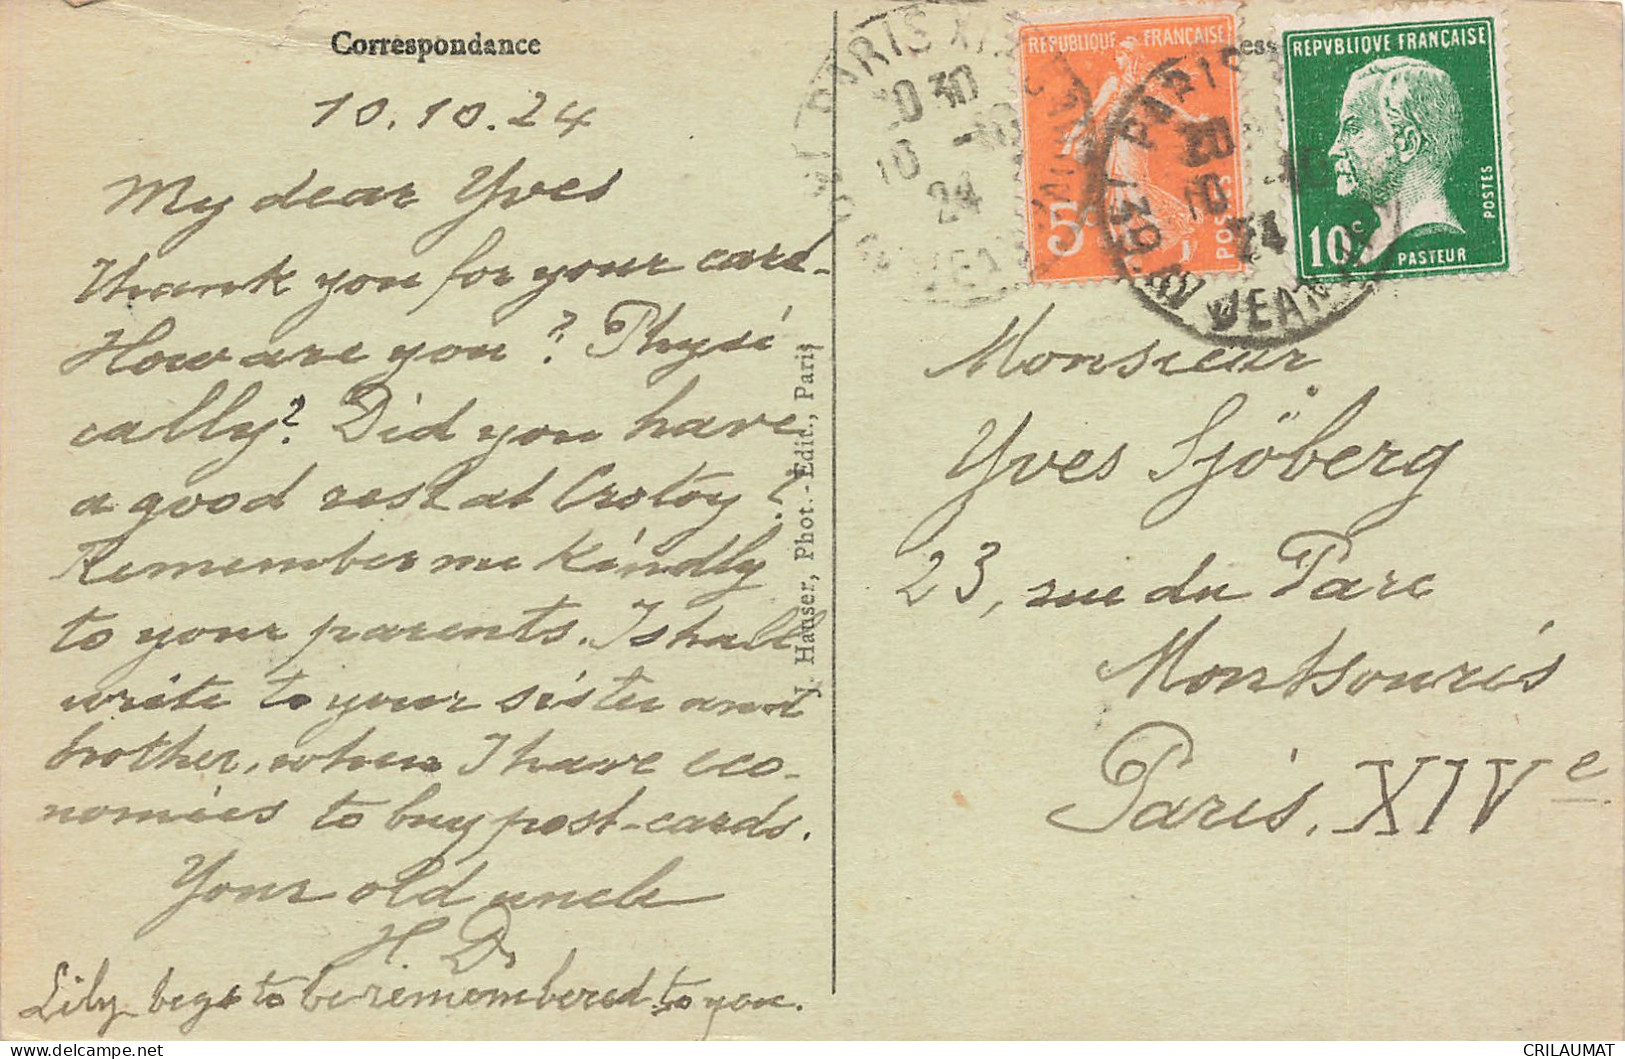 Correspondance
10.10.24
My dear Yves
Thank you for your card.
How are you? Physi
cally? Did you have
a good rest at Crotoy?
Remember me kindly
to your parents. I shall
write to your sister and
brother, when I have eco-
nomies to buy post-cards.
Your old uncle
H. D.
Lily begs to be remembered to you.
J. Hauser, Phot.-Edit., Paris
PARIS
10 30
10 -10
24
REPUBLIQUE FRANÇAISE
5c
POSTES
REPVBLIQVE FRANÇAISE
10c
POSTES
PASTEUR
PARIS
24
JEAN
Monsieur
Yves Sjöberg
23, rue du Parc
Montsouris
Paris. XIVe
CRILAUMAT